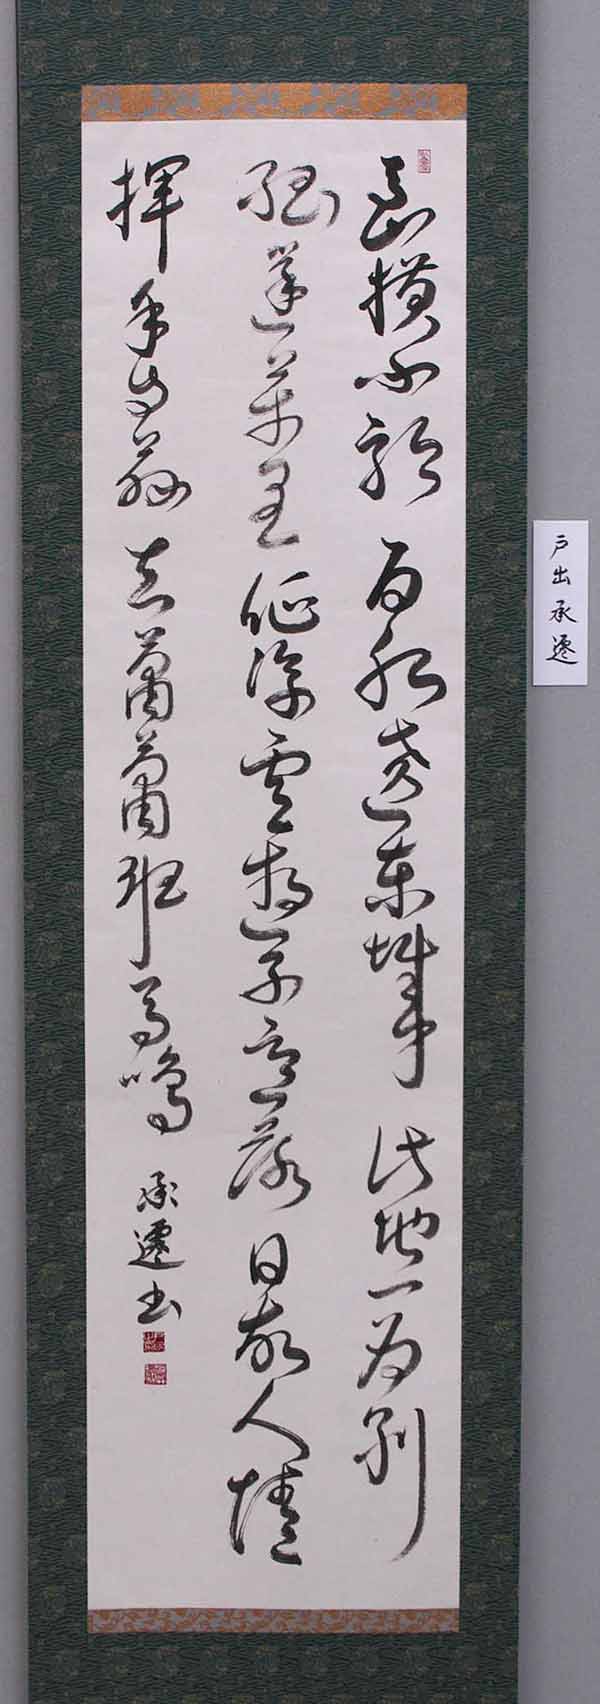 青山横北郭白水遶東城此地一為別
孤蓬萬里征浮雲遊子意落日故人情
揮手自茲去蕭蕭班馬鳴 承遷書
戸出承遷